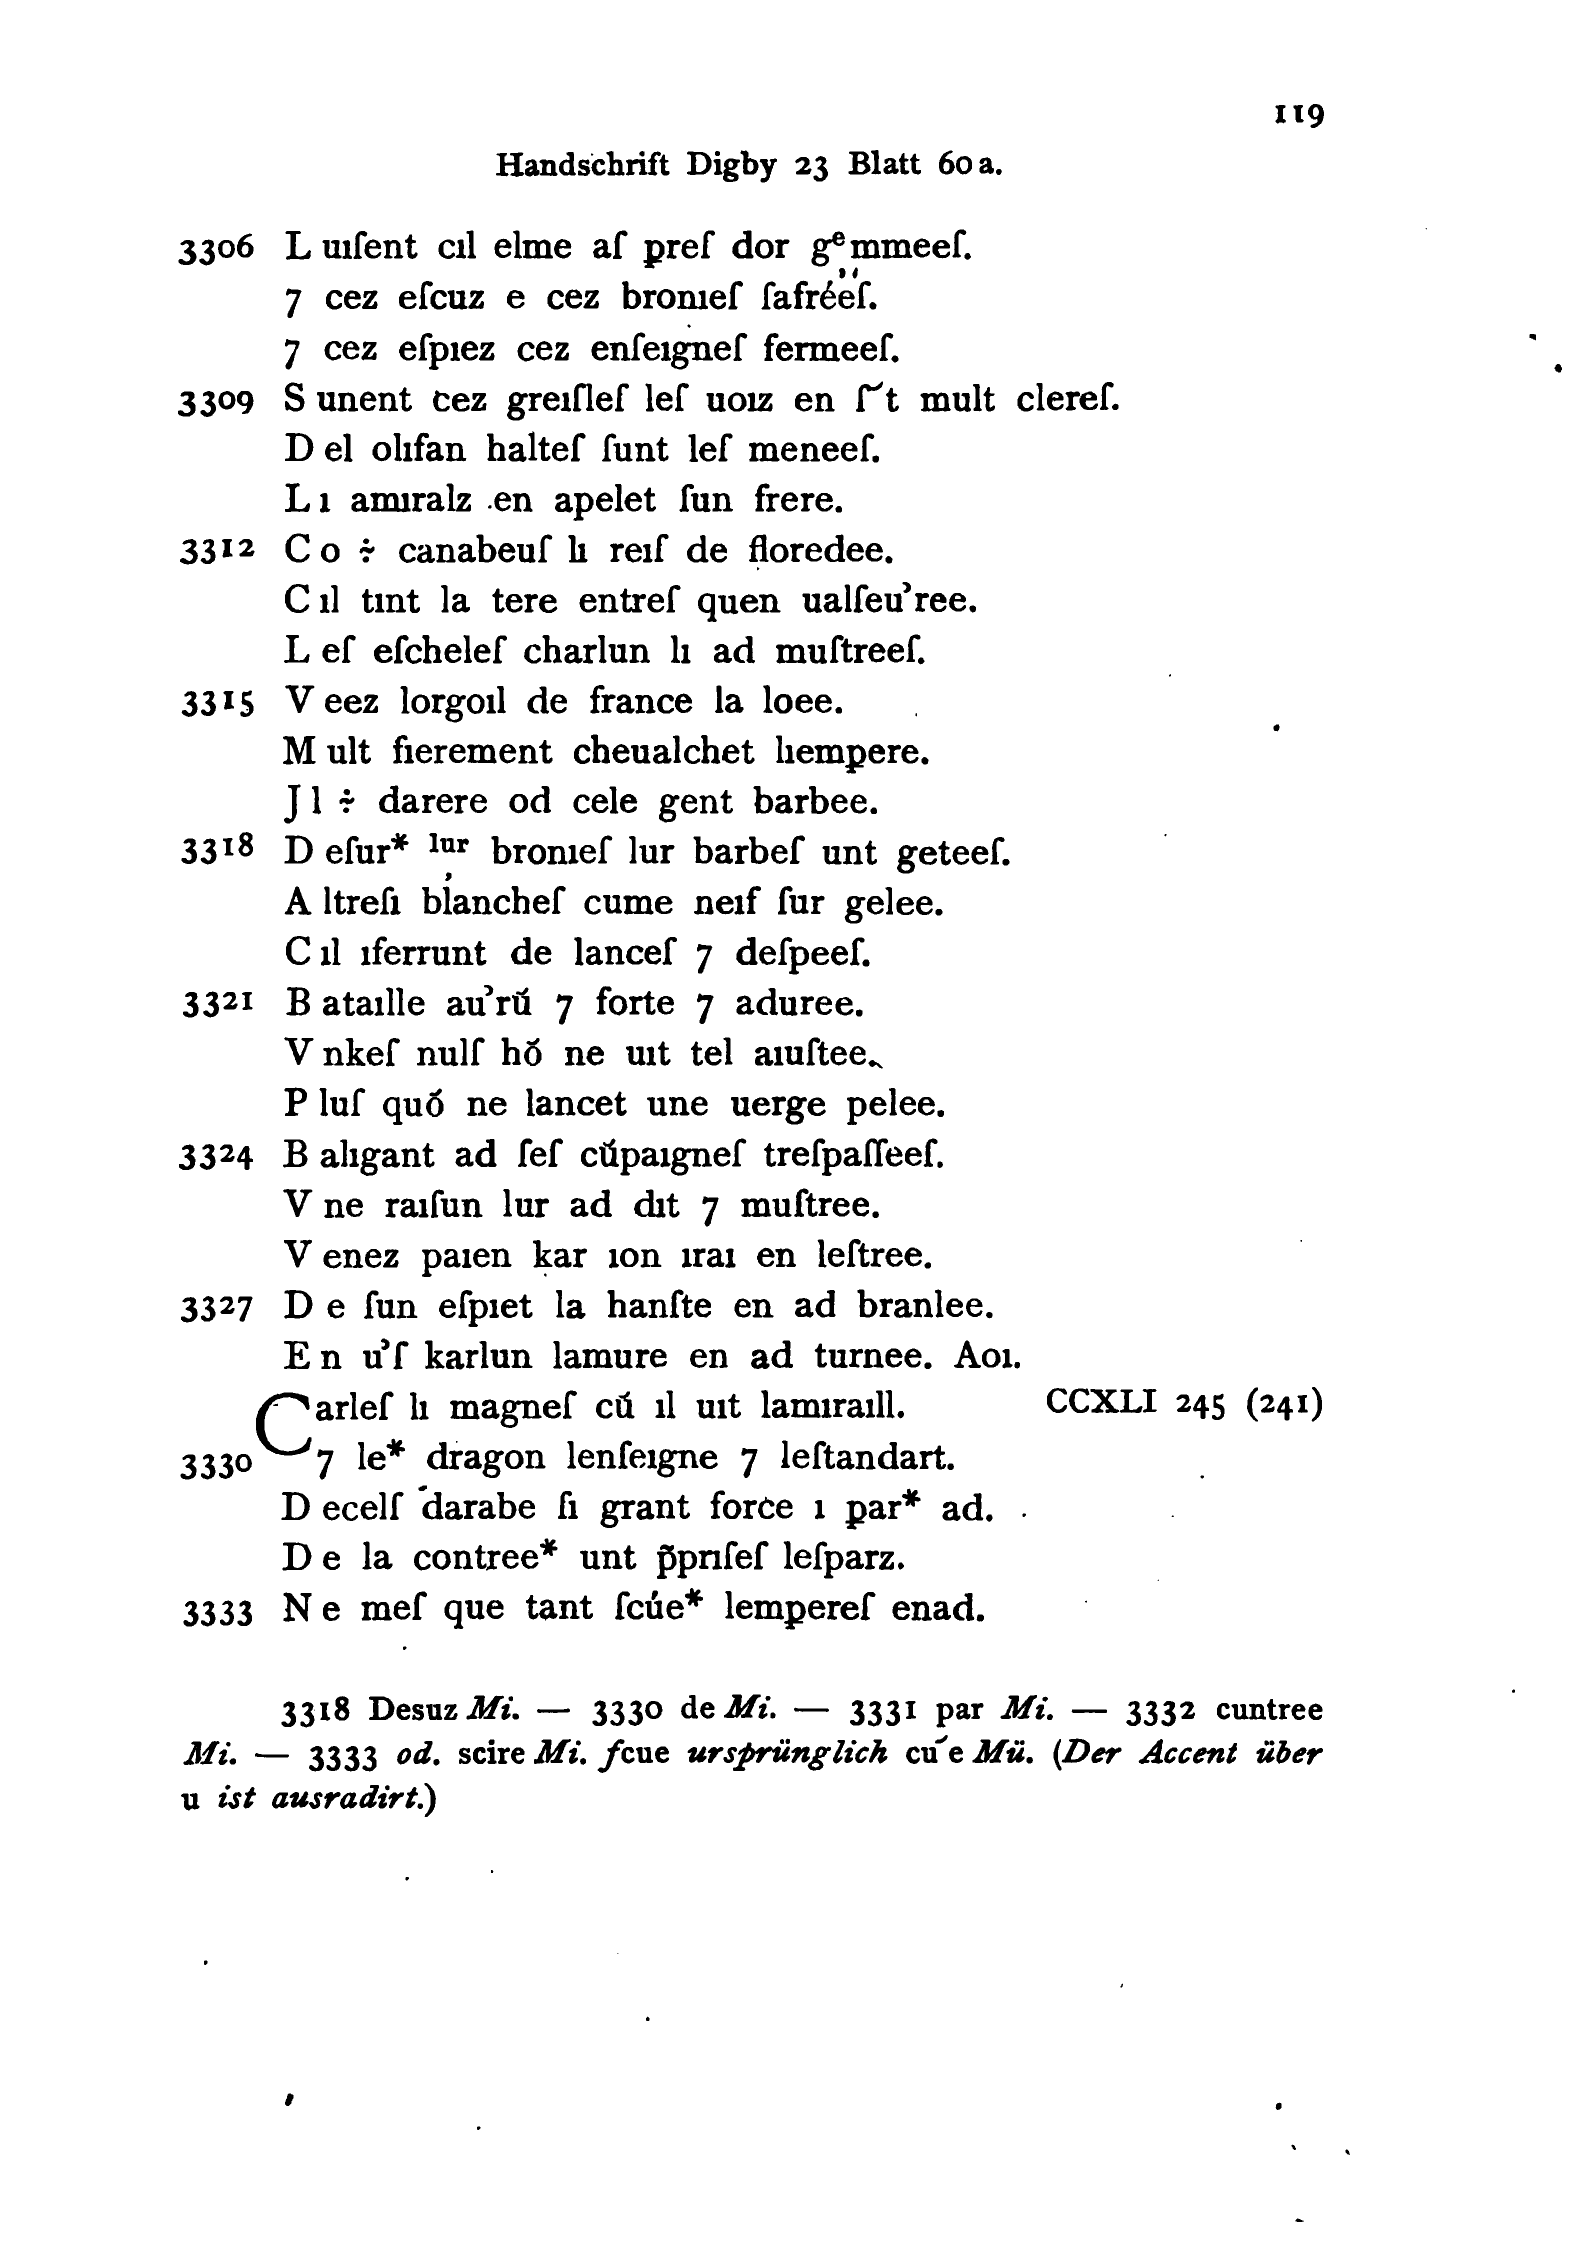 119
Handschrift Digby 23 Blatt 60 a.
3306 L uıſent cıl elme aſ preſ dor gᵉmmeeſ.
7 cez eſcuz e cez bronıeſ ſafrééſ.
7 cez eſpıez cez enſeıgneſ fermeeſ.
3309 S unent cez greıſleſ leſ uoız en ſ˜t mult clereſ.
D el olıfan halteſ ſunt leſ meneeſ.
L ı amıralz en apelet ſun frere.
3312 C o ÷ canabeuſ lı reıſ de floredee.
C ıl tınt la tere entreſ quen ualſeu’ree.
L eſ eſcheleſ charlun lı ad muſtreeſ.
3315 V eez lorgoıl de france la loee.
M ult fıerement cheualchet lıempere.
J l ÷ darere od cele gent barbee.
3318 D eſur* ˡᵘʳ bronıeſ lur barbeſ unt geteeſ.
A ltreſı blancheſ cume neıf ſur gelee.
C ıl ıferrunt de lanceſ 7 deſpeeſ.
3321 B ataılle au’rṹ 7 forte 7 aduree.
V nkeſ nulſ hő ne uıt tel aıuſtee.
P luſ quő ne lancet une uerge pelee.
3324 B alıgant ad ſeſ cűpaıgneſ treſpaſſeeſ.
V ne raıſun lur ad dıt 7 muſtree.
V enez paıen kar ıon ıraı en leſtree.
3327 D e ſun eſpıet la hanſte en ad branlee.
E n u’ſ karlun lamure en ad turnee. Aoı.
Carleſ lı magneſ cű ıl uıt lamıraıll. CCXLI 245 (241)
3330 7 le* dragon lenſeıgne 7 leſtandart.
D ecelſ darabe ſı grant force ı par* ad.
D e la contree* unt p̃pnſeſ leſparz.
3333 N e meſ que tant ſcúe* lempereſ enad.
3318 Desuz Mi. — 3330 de Mi. — 3331 par Mi. — 3332 cuntree
Mi. — 3333 od. scire Mi. ſcue ursprünglich cu´e Mü. (Der Accent über
u ist ausradirt.)